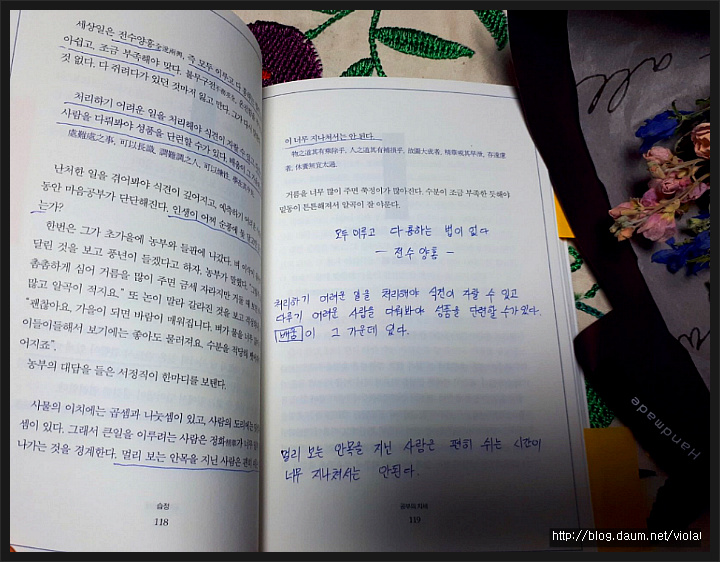 세상일은 전수양흥全遂兩興, 즉 모두 이루고 다 흥하는
아쉽고, 조금 부족해야 맞다.
것 없다. 다 쥐려다가 있던 것마저 잃고 만다.
처리하기 어려운 일을 처리해야 식견이 자랄 수 있고
사람을 다뤄봐야 성품을 단련할 수가 있다. 배움이
處難處之事, 可以長識, 調難調之人, 可以煉性, 學在其中
난처한 일을 겪어봐야 식견이 깊어지고,
동안 마음공부가 단단해진다. 인생이 어찌 순풍에
는가?
한번은 그가 초가을에 농부와 들판에 나갔다.
달린 것을 보고 풍년이 들겠다고 하자, 농부가 말했다.
촘촘하게 심어 거름을 많이 주면 금세 자라지만
많고 알곡이 적지요." 또 논이 말라 갈라진 것을 보고
"괜찮아요. 가을이 되면 바람이 매워집니다. 벼가 물을
이들이들해서 보기에는 좋아도 물러져요. 수분을 적당히
어지죠".
농부의 대답을 들은 서정직이 한마디를 보탠다.
사물의 이치에는 곱셈과 나눗셈이 있고, 사람의 도리에는
셈이 있다. 그래서 큰일을 이루려는 사람은 정화精華가 너무
나가는 것을 경계한다. 멀리 보는 안목을 지닌 사람은 편히
습정
118
이 너무 지나쳐서는 안 된다.
物之道其有乘除乎, 人之道其有補損乎, 故圖大成者, 精華戒其早洩, 存遠運
者, 休養無宜太過.
거름을 너무 많이 주면 쭉정이가 많아진다. 수분이 조금 부족한 듯해야
밑동이 튼튼해져서 알곡이 잘 여문다.
모두 이루고 다 흥하는 법이 없다
- 전수 양흥 -
처리하기 어려운 일을 처리해야 식견이 자랄 수 있고
다루기 어려운 사람을 다뤄봐야 성품을 단련할 수가 있다.
배움이 그 가운데 있다.
멀리 보는 안목을 지닌 사람은 편히 쉬는 시간이
너무 지나쳐서는 안된다.
119
all
Handmade
http://blog.daum.net/violai